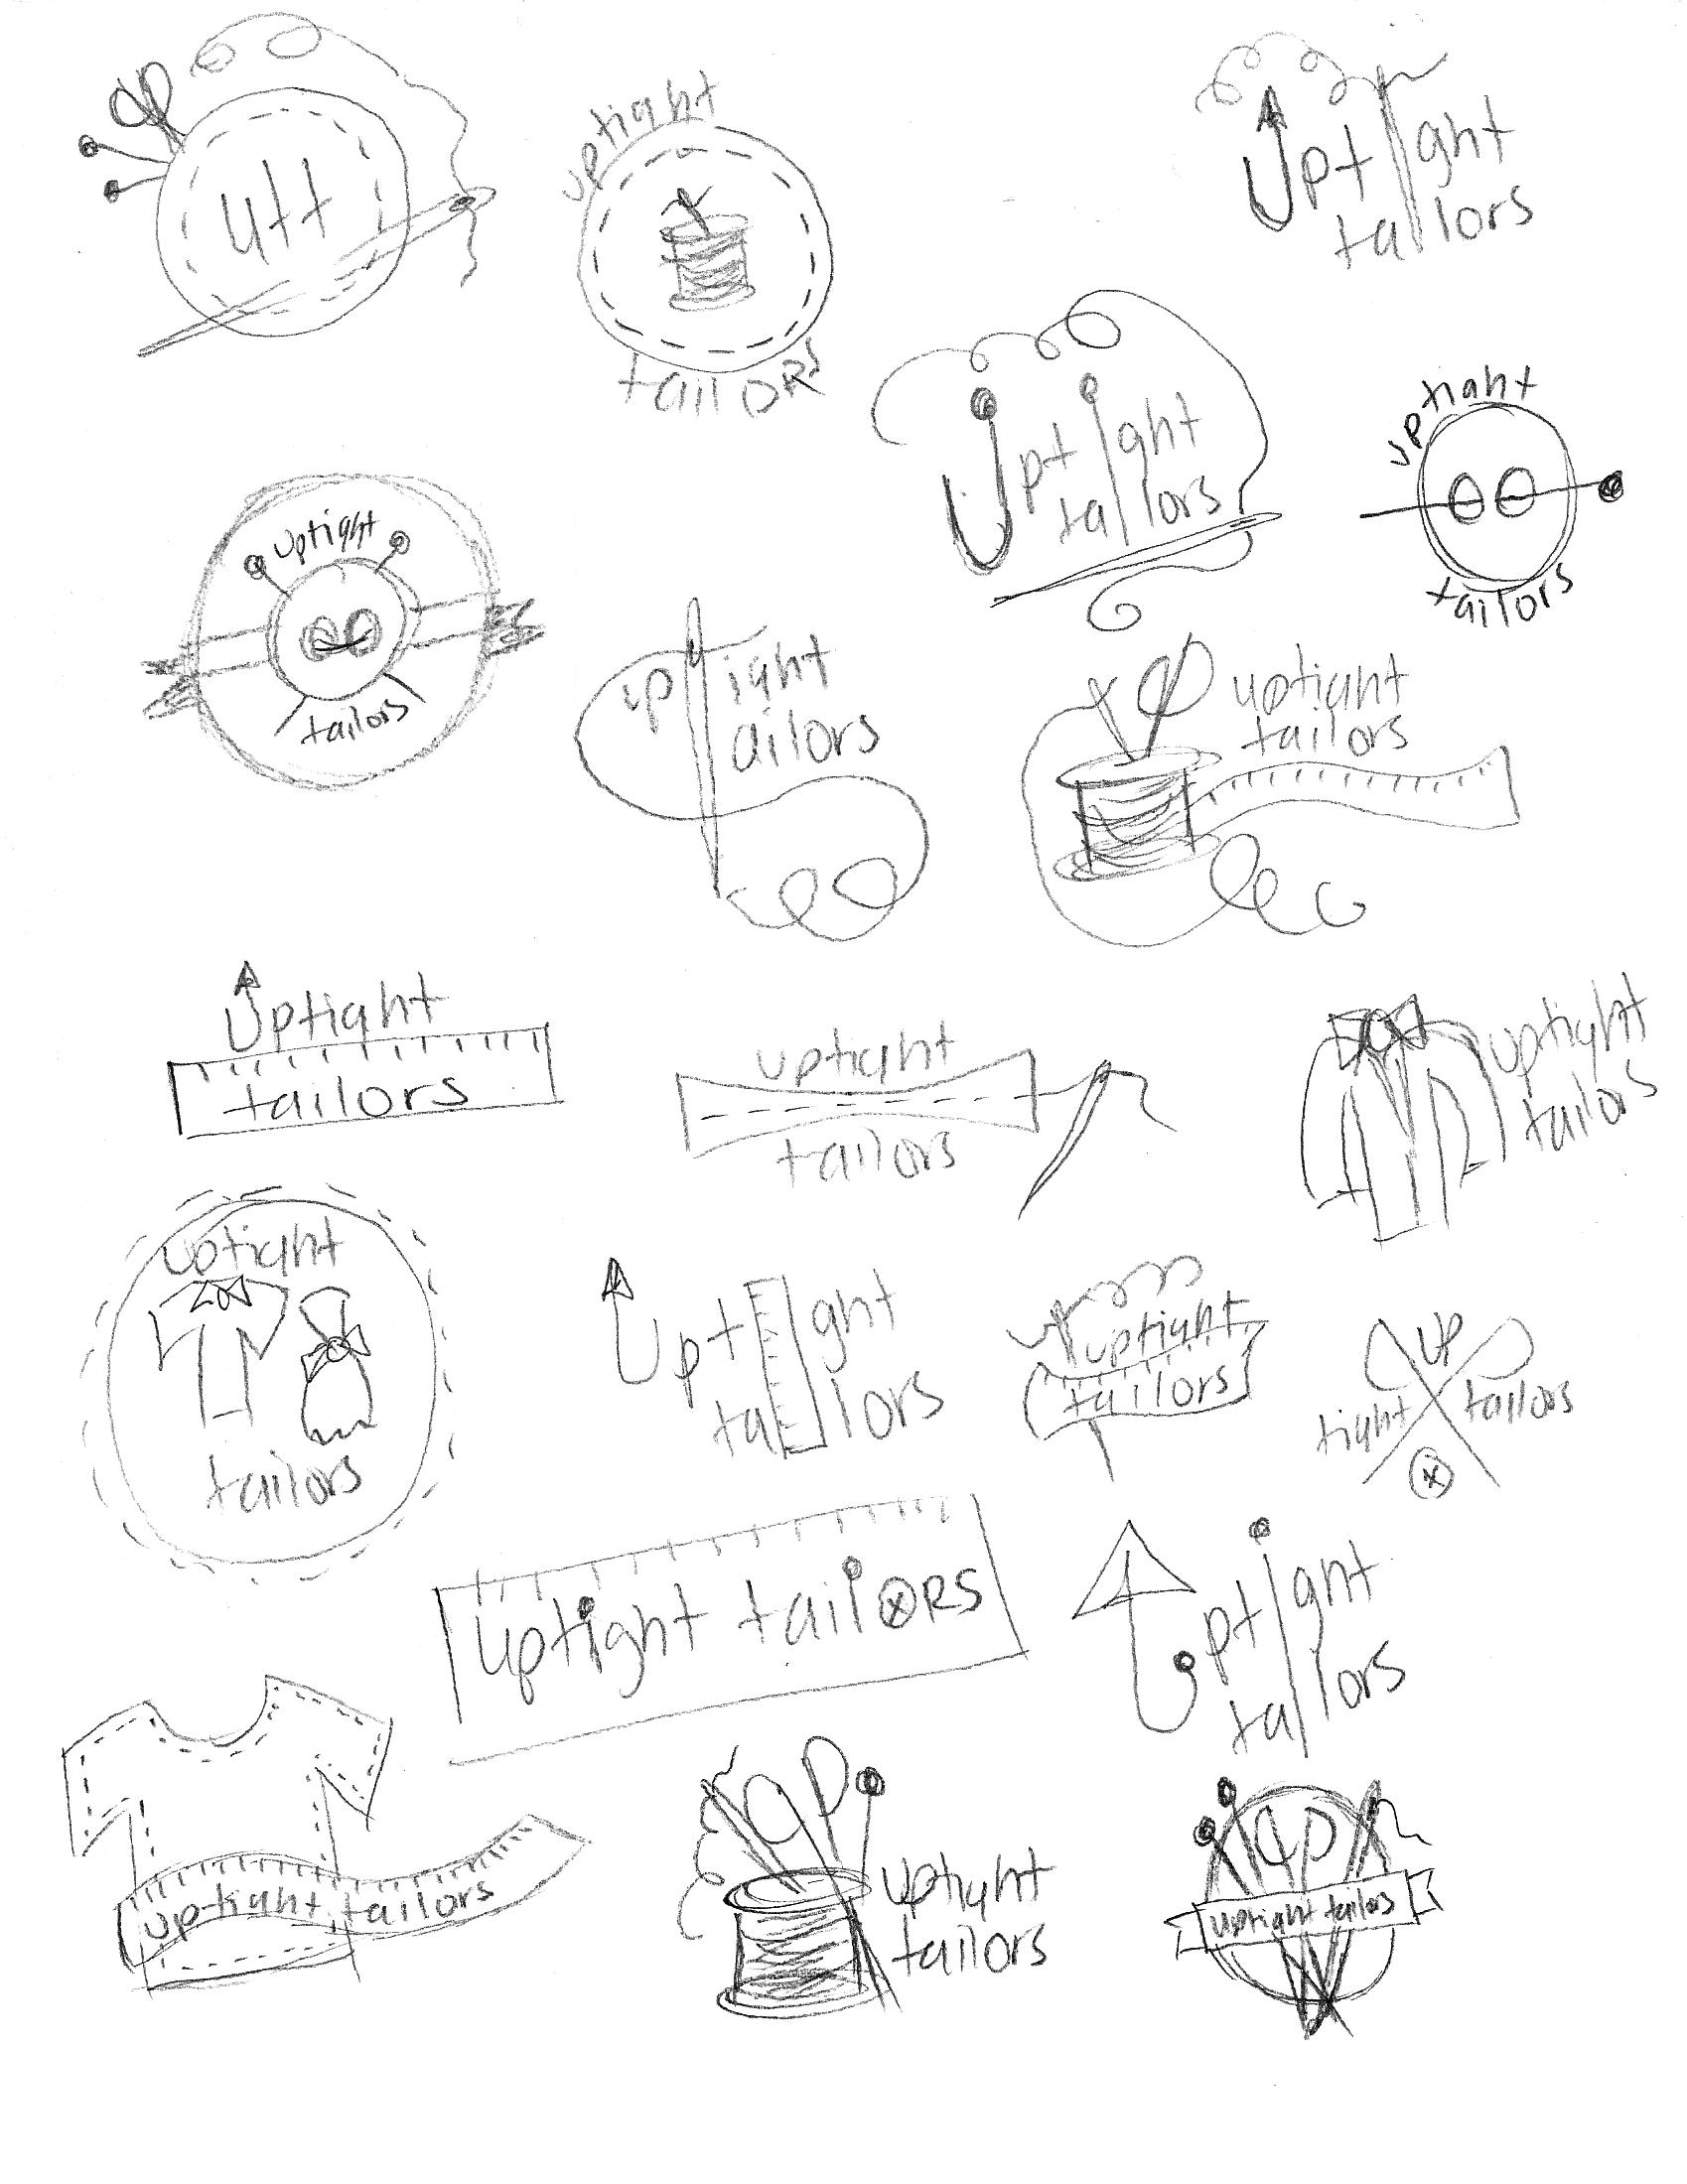 utt
uptight
tailORS
uptight
tailors
uptight
tailors
uptight
tailors
uptight
tailors
uptight
tailors
uptight
tailors
uptight
tailors
uptight
tailors
uptight
tailors
uptight
tailors
uptight
tailors
uptight
tailors
up
tight tailors
uptight tailoRS
uptight
tailors
uptight tailors
uptight
tailors
uptight tailors